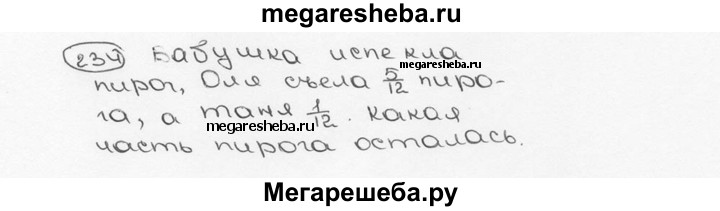 megaresheba.ru
234 Бабушка испекла
megaresheba.ru
пирог, Оля съела 5/12 пиро-
га, а таня 1/12. какая
megaresheba.ru
часть пирога осталась.
Мегарешеба.ру